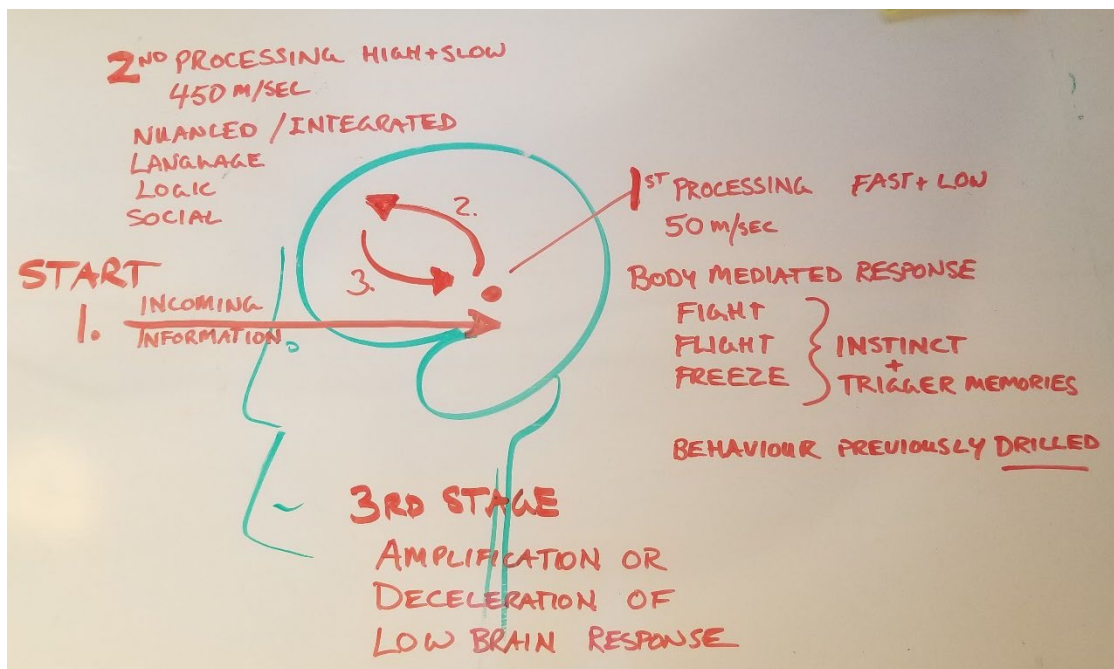 2ND PROCESSING HIGH + SLOW
450 M/SEC
NUANCED / INTEGRATED
LANGUAGE
LOGIC
SOCIAL
START
1. INCOMING
INFORMATION
2.
3.
1ST PROCESSING FAST + LOW
50 M/SEC
BODY MEDIATED RESPONSE
FIGHT
FLIGHT
FREEZE
INSTINCT
+
TRIGGER MEMORIES
BEHAVIOUR PREVIOUSLY DRILLED
3RD STAGE
AMPLIFICATION OR
DECELERATION OF
LOW BRAIN RESPONSE